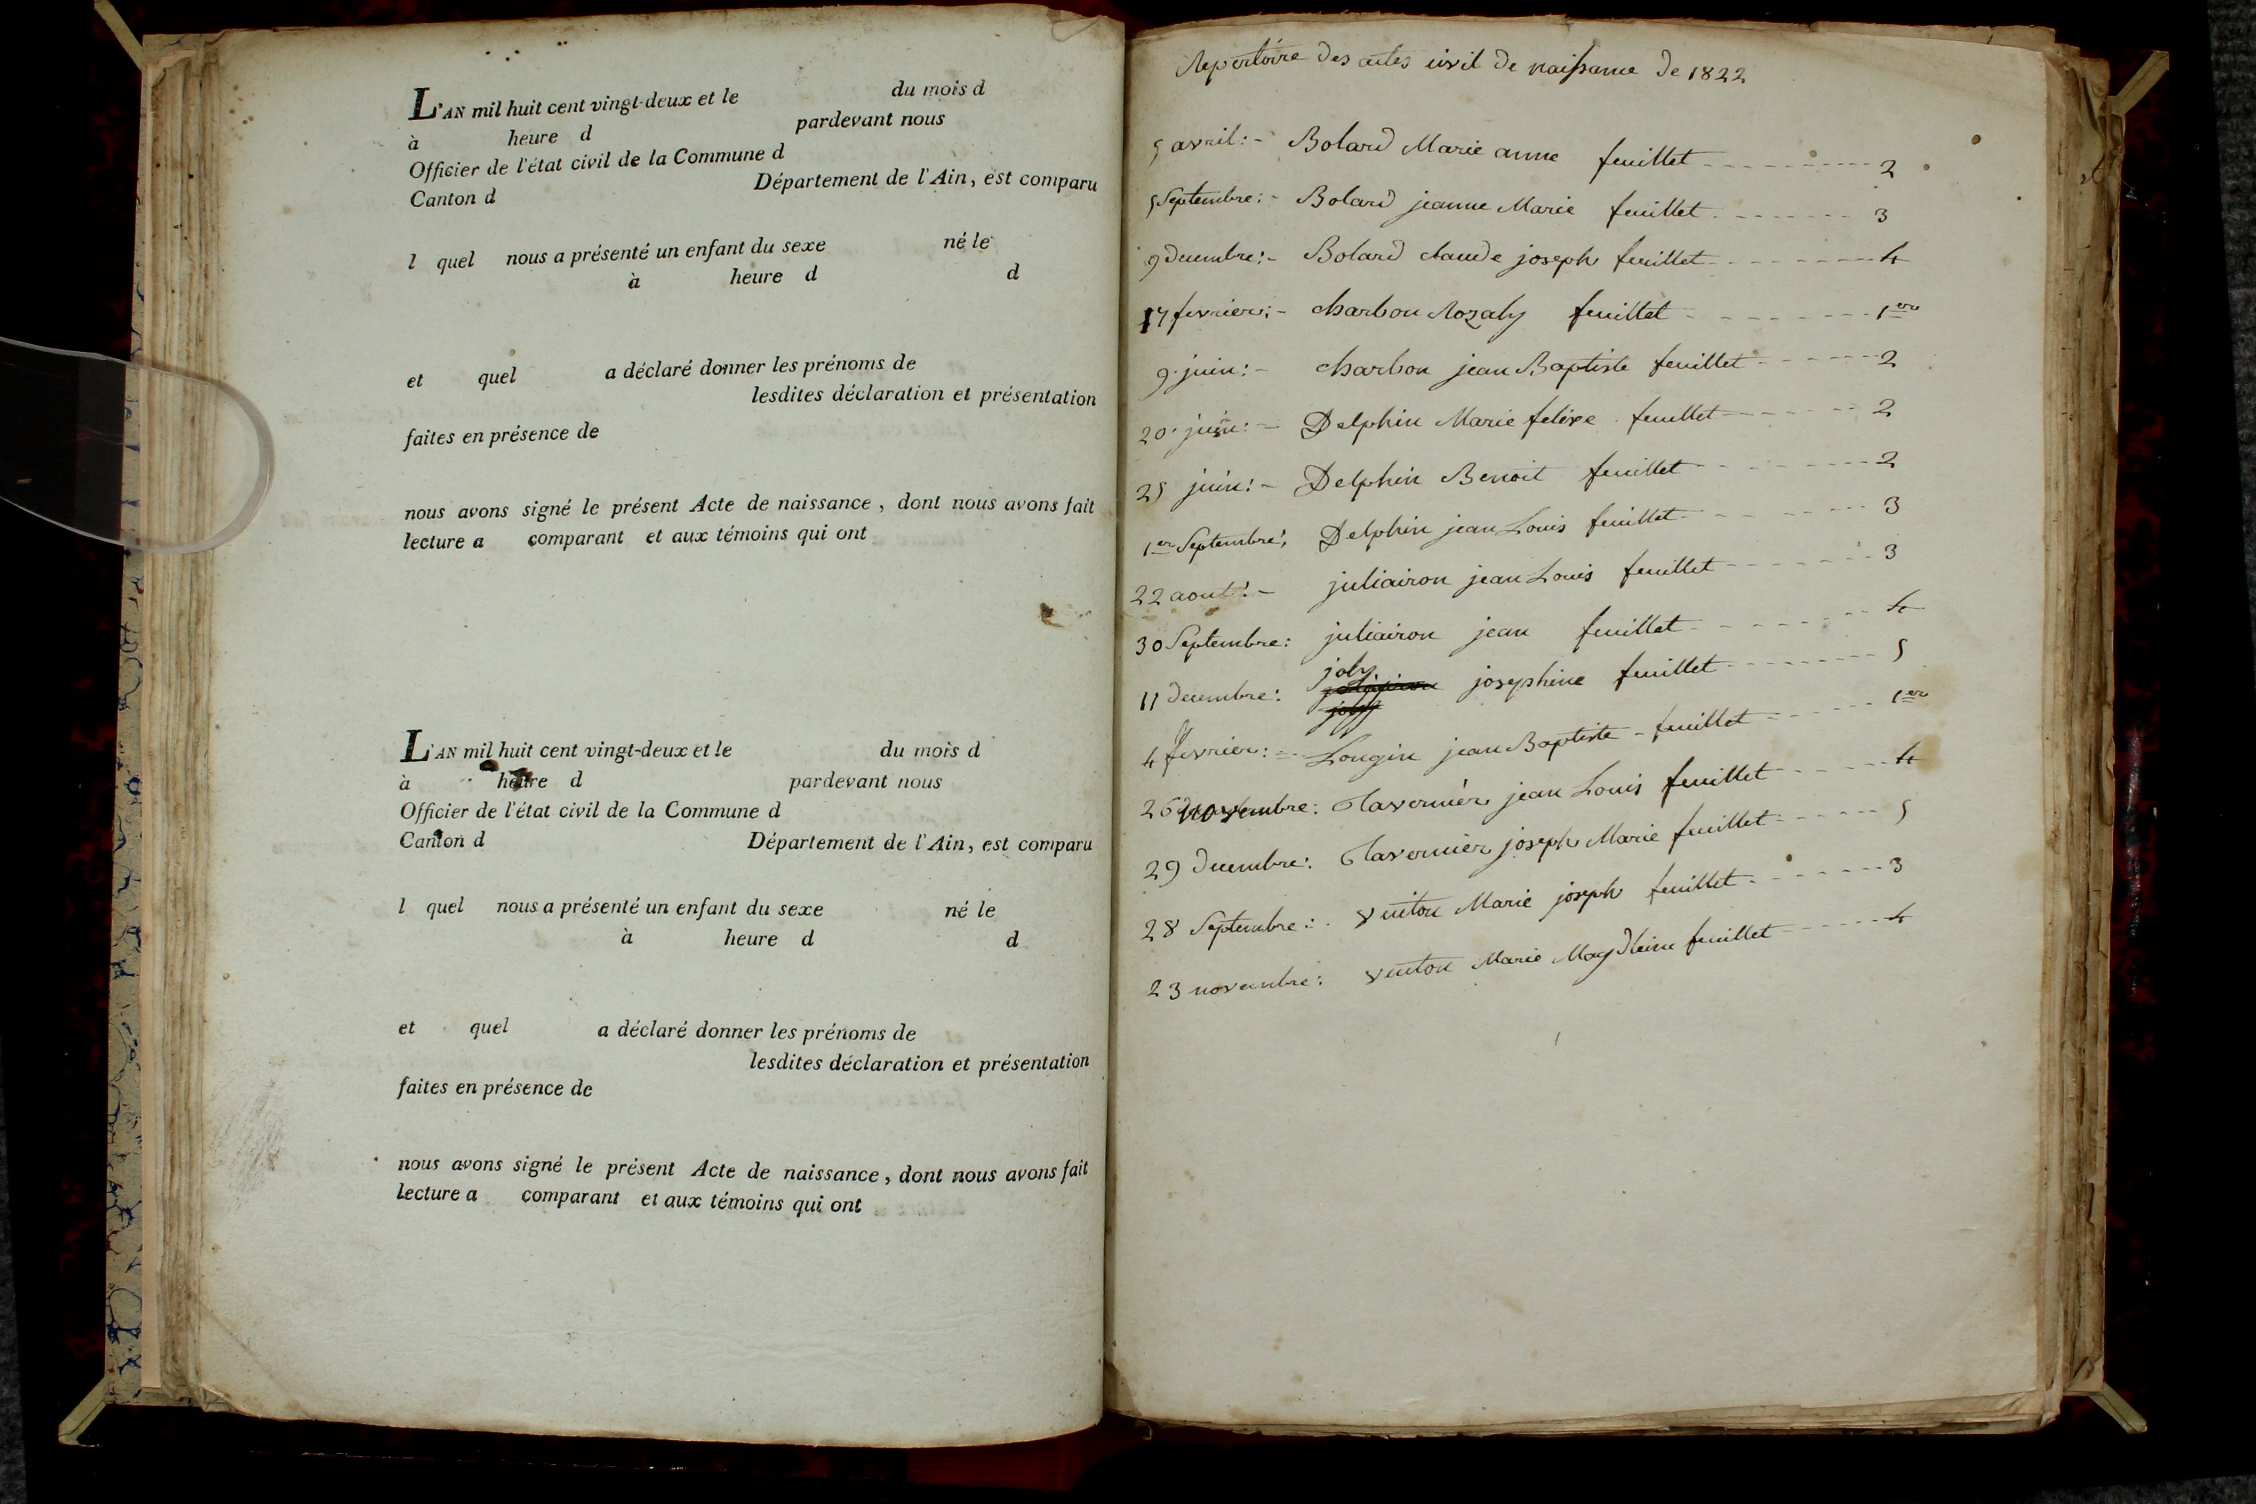 L'AN mil huit cent vingt-deux et le du mois d
à heure d pardevant nous
Officier de l'état civil de la Commune d
Canton d Département de l'Ain, est comparu
l quel nous a présenté un enfant du sexe né le
à heure d d
et quel a déclaré donner les prénoms de
lesdites déclaration et présentation
faites en présence de
nous avons signé le présent Acte de naissance, dont nous avons fait
lecture a comparant et aux témoins qui ont
L'AN mil huit cent vingt-deux et le du mois d
à heure d pardevant nous
Officier de l'état civil de la Commune d
Canton d Département de l'Ain, est comparu
l quel nous a présenté un enfant du sexe né le
à heure d d
et quel a déclaré donner les prénoms de
lesdites déclaration et présentation
faites en présence de
nous avons signé le présent Acte de naissance, dont nous avons fait
lecture a comparant et aux témoins qui ont
Repertoire des actes civil de naissance de 1822
5 avril: - Bolard Marie anne feuillet 2
5 Septembre: - Bolard jeanne Marie feuillet 3
9 decembre: - Bolard claude joseph feuillet 4
17 fevrier: - charbon Rozaly feuillet 1er
9 juin: - charbon jean Baptiste feuillet 2
20 juin: - Delphin Marie felixe feuillet 2
25 juin: - Delphin Benoit feuillet 2
1er Septembre: Delphin jean Louis feuillet 3
22 aout: - juliairon jean Louis feuillet 3
30 Septembre: juliairon jean feuillet 4
joly
11 decembre: josephine feuillet 5
4 fevrier: Longin jean Baptiste - feuillet 1er
26 novembre: Tavernier jean Louis feuillet 4
29 decembre: Tavernier joseph Marie feuillet 5
28 Septembre: vuiton Marie joseph feuillet 3
23 novembre: vuiton Marie Magdleine feuillet 4